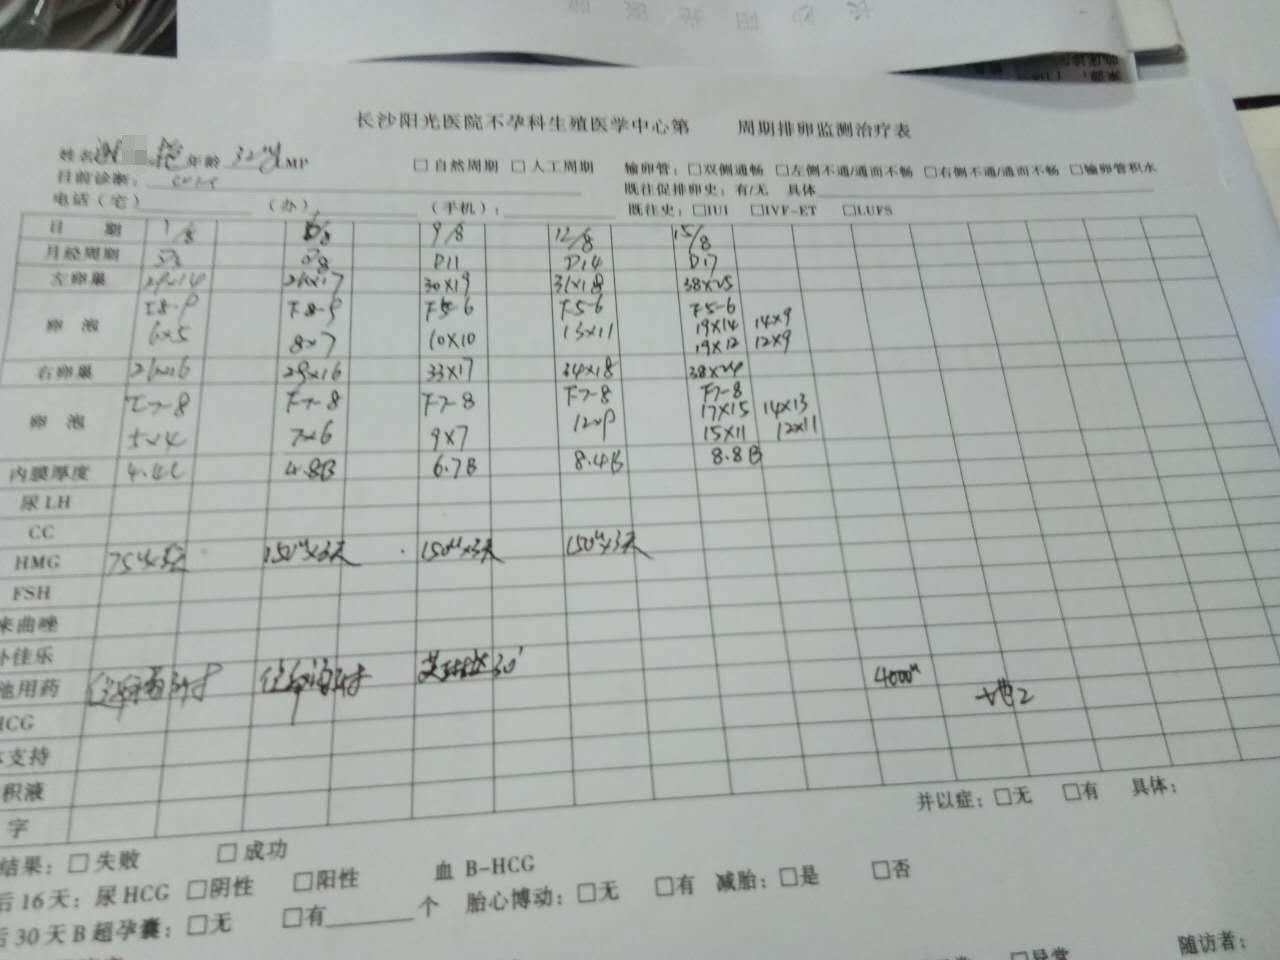 长沙阳光医院不孕科生殖医学中心第 周期排卵监测治疗表
姓名 艳 年龄 32 LMP □自然周期 □人工周期 输卵管：□双侧通畅 □左侧不通/通而不畅 □右侧不通/通而不畅 □输卵管积水
目前诊断： 既往促排卵史：有/无 具体
电话（宅） （办） （手机）： 既往史：□IUI □IVF-ET □LUFS
日 期 1/8 9/8 12/8 15/8
月经周期 D8 D11 D14 D17
左卵巢 30×19 31×18 38×25
卵 泡 F8-9 F8-9 F5-6 F5-6 F5-6
6×5 8×7 10×10 13×11 19×14 14×9
19×12 12×9
右卵巢 29×16 33×17 34×18 38×24
卵 泡 F7-8 F7-8 F7-8 F7-8 F7-8
5×4 7×6 9×7 12×9 17×15 14×13
15×11 12×11
内膜厚度 4.8B 6.7B 8.4B 8.8B
尿LH
CC
HMG 75u×3天 150u×3天 150u×3天 150u×3天
FSH
来曲唑
补佳乐
他用药 4000u
HCG
支持
积液
字
并以症：□无 □有 具体：
结果：□失败 □成功
后16天：尿HCG □阴性 □阳性 血 B-HCG
后30天B超孕囊：□无 □有 个 胎心博动：□无 □有 减胎：□是 □否
□异常 随访者：